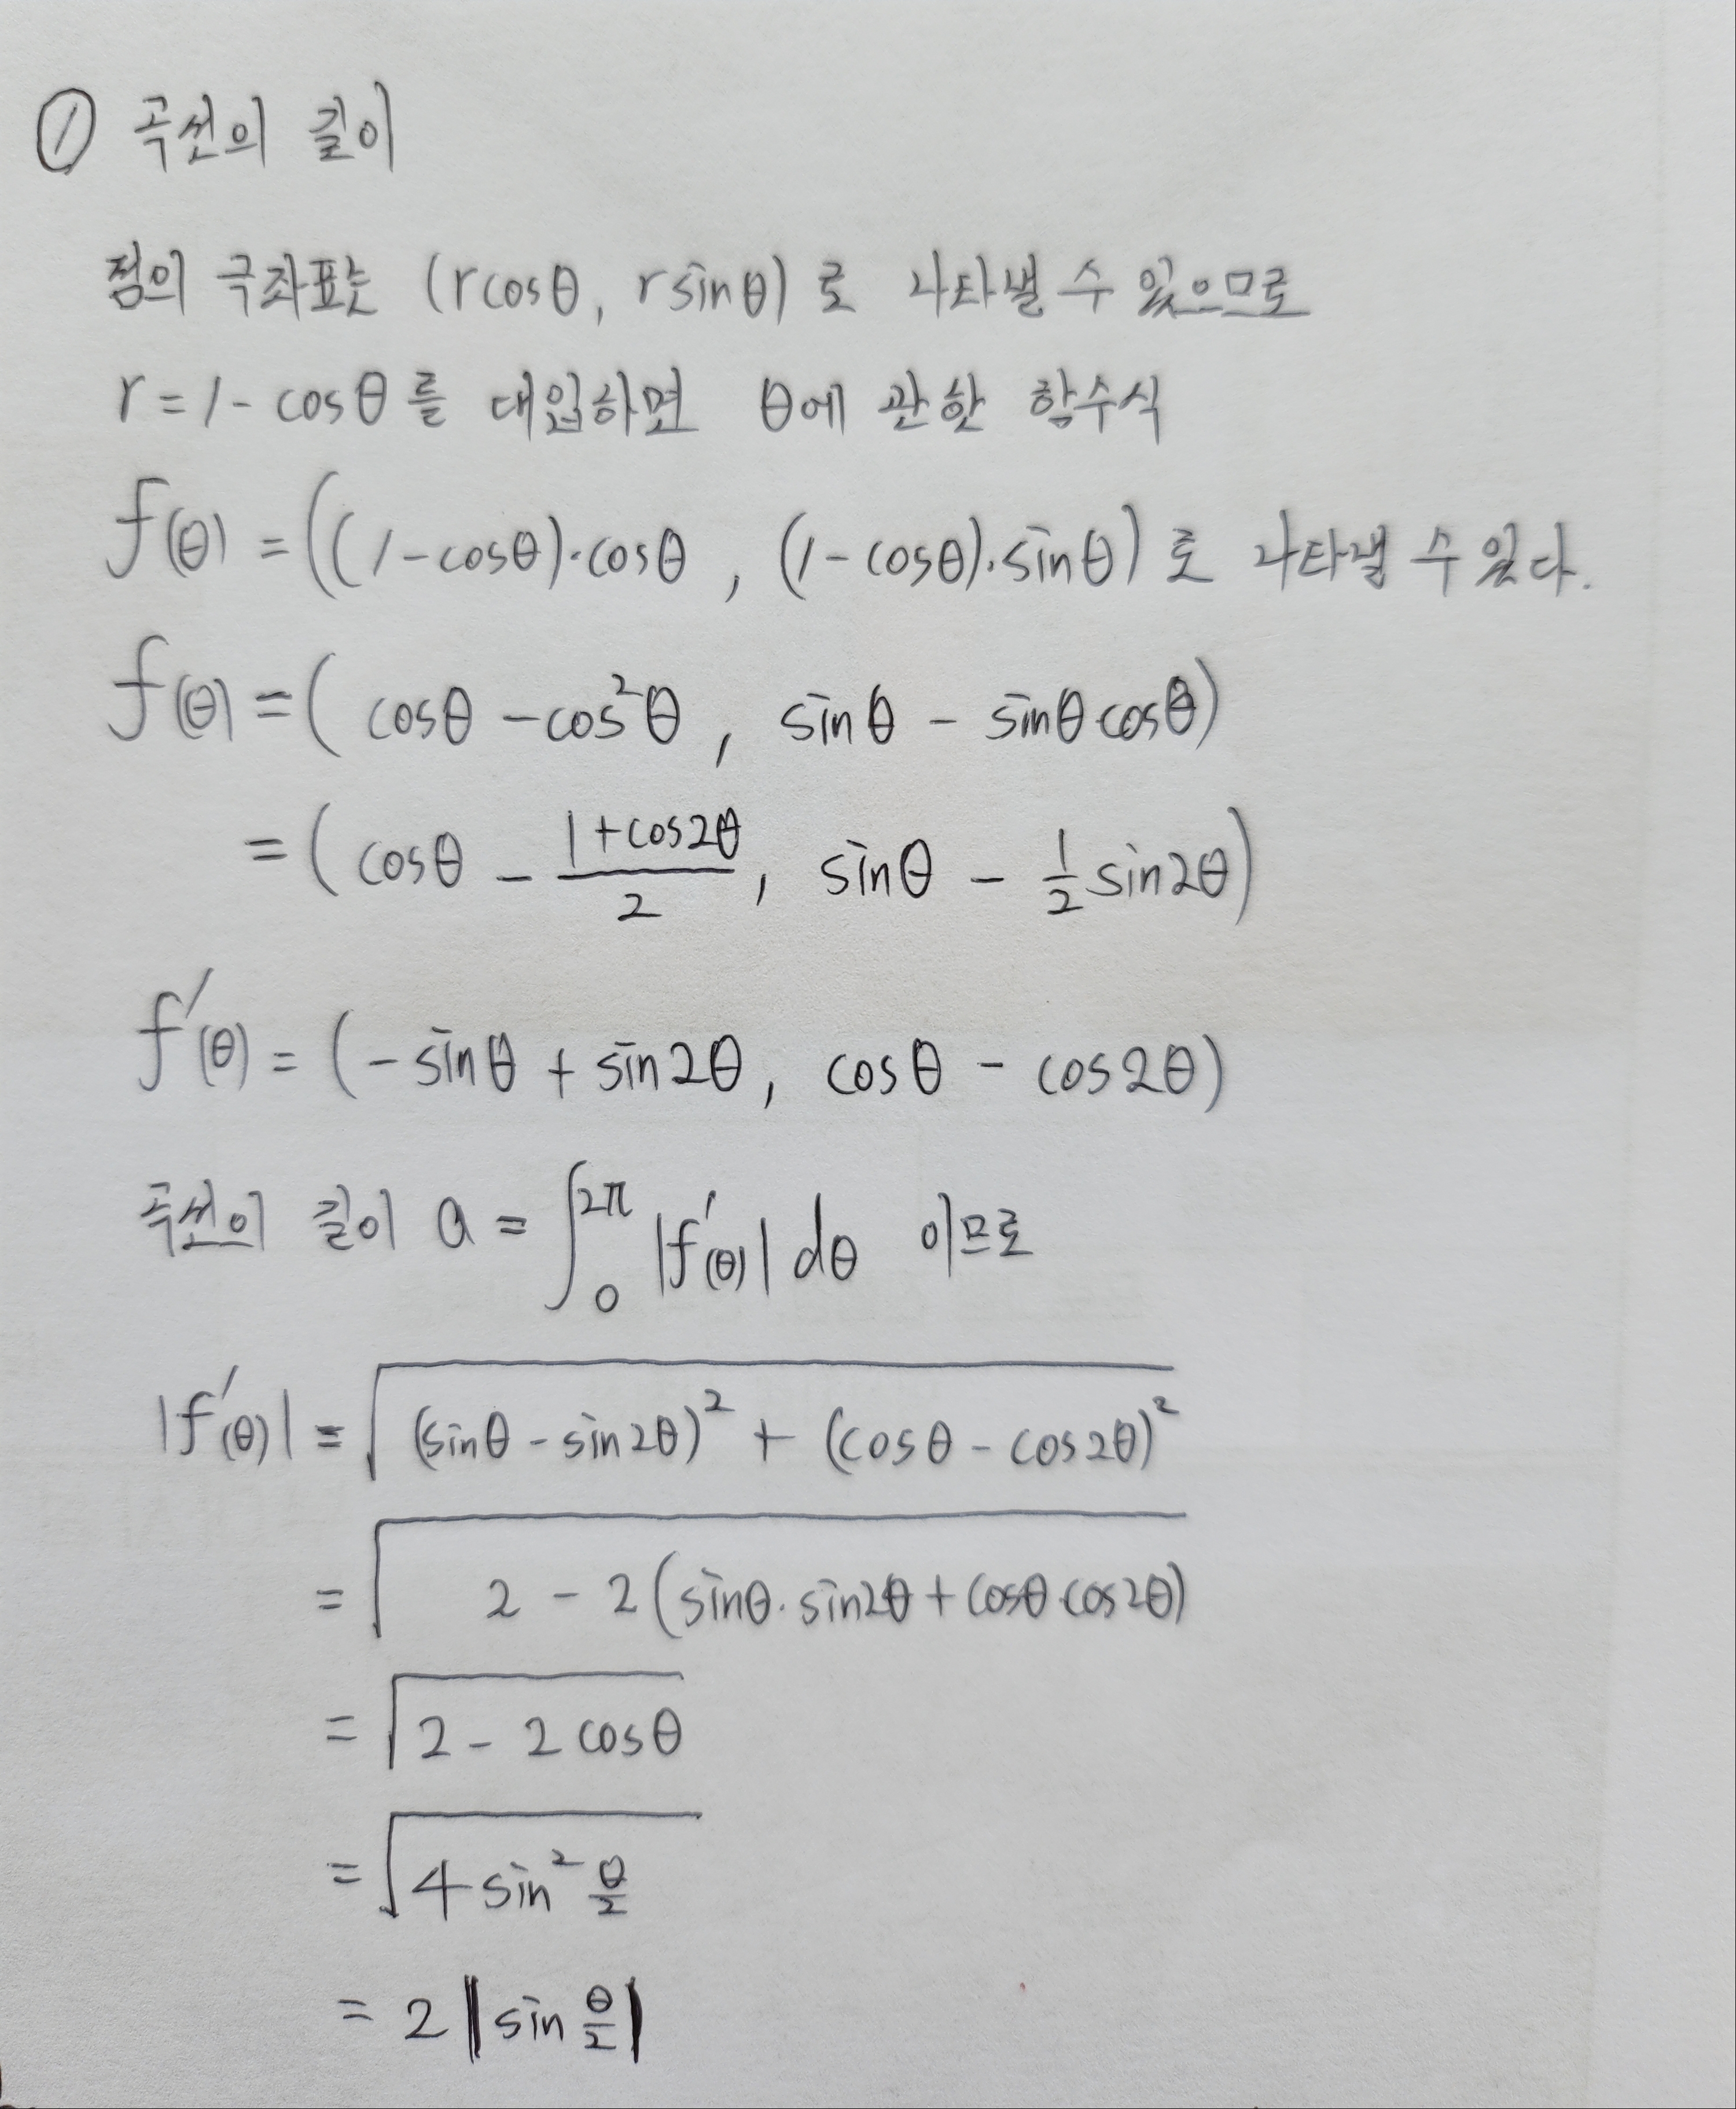 ① 곡선의 길이
점의 극좌표는 (rcosθ, rsinθ)로 나타낼 수 있으므로
r = 1 - cosθ를 대입하면 θ에 관한 함수식
f(θ) = ((1-cosθ)·cosθ, (1-cosθ)·sinθ)로 나타낼 수 있다.
f(θ) = (cosθ - cos²θ, sinθ - sinθcosθ)
= (cosθ - (1+cos2θ)/2, sinθ - 1/2 sin2θ)
f'(θ) = (-sinθ + sin2θ, cosθ - cos2θ)
곡선의 길이 a = ∫₀^2π |f'(θ)| dθ 이므로
|f'(θ)| = √((sinθ - sin2θ)² + (cosθ - cos2θ)²)
= √(2 - 2(sinθ·sin2θ + cosθ·cos2θ))
= √(2 - 2cosθ)
= √(4sin² θ/2)
= 2|sin θ/2|